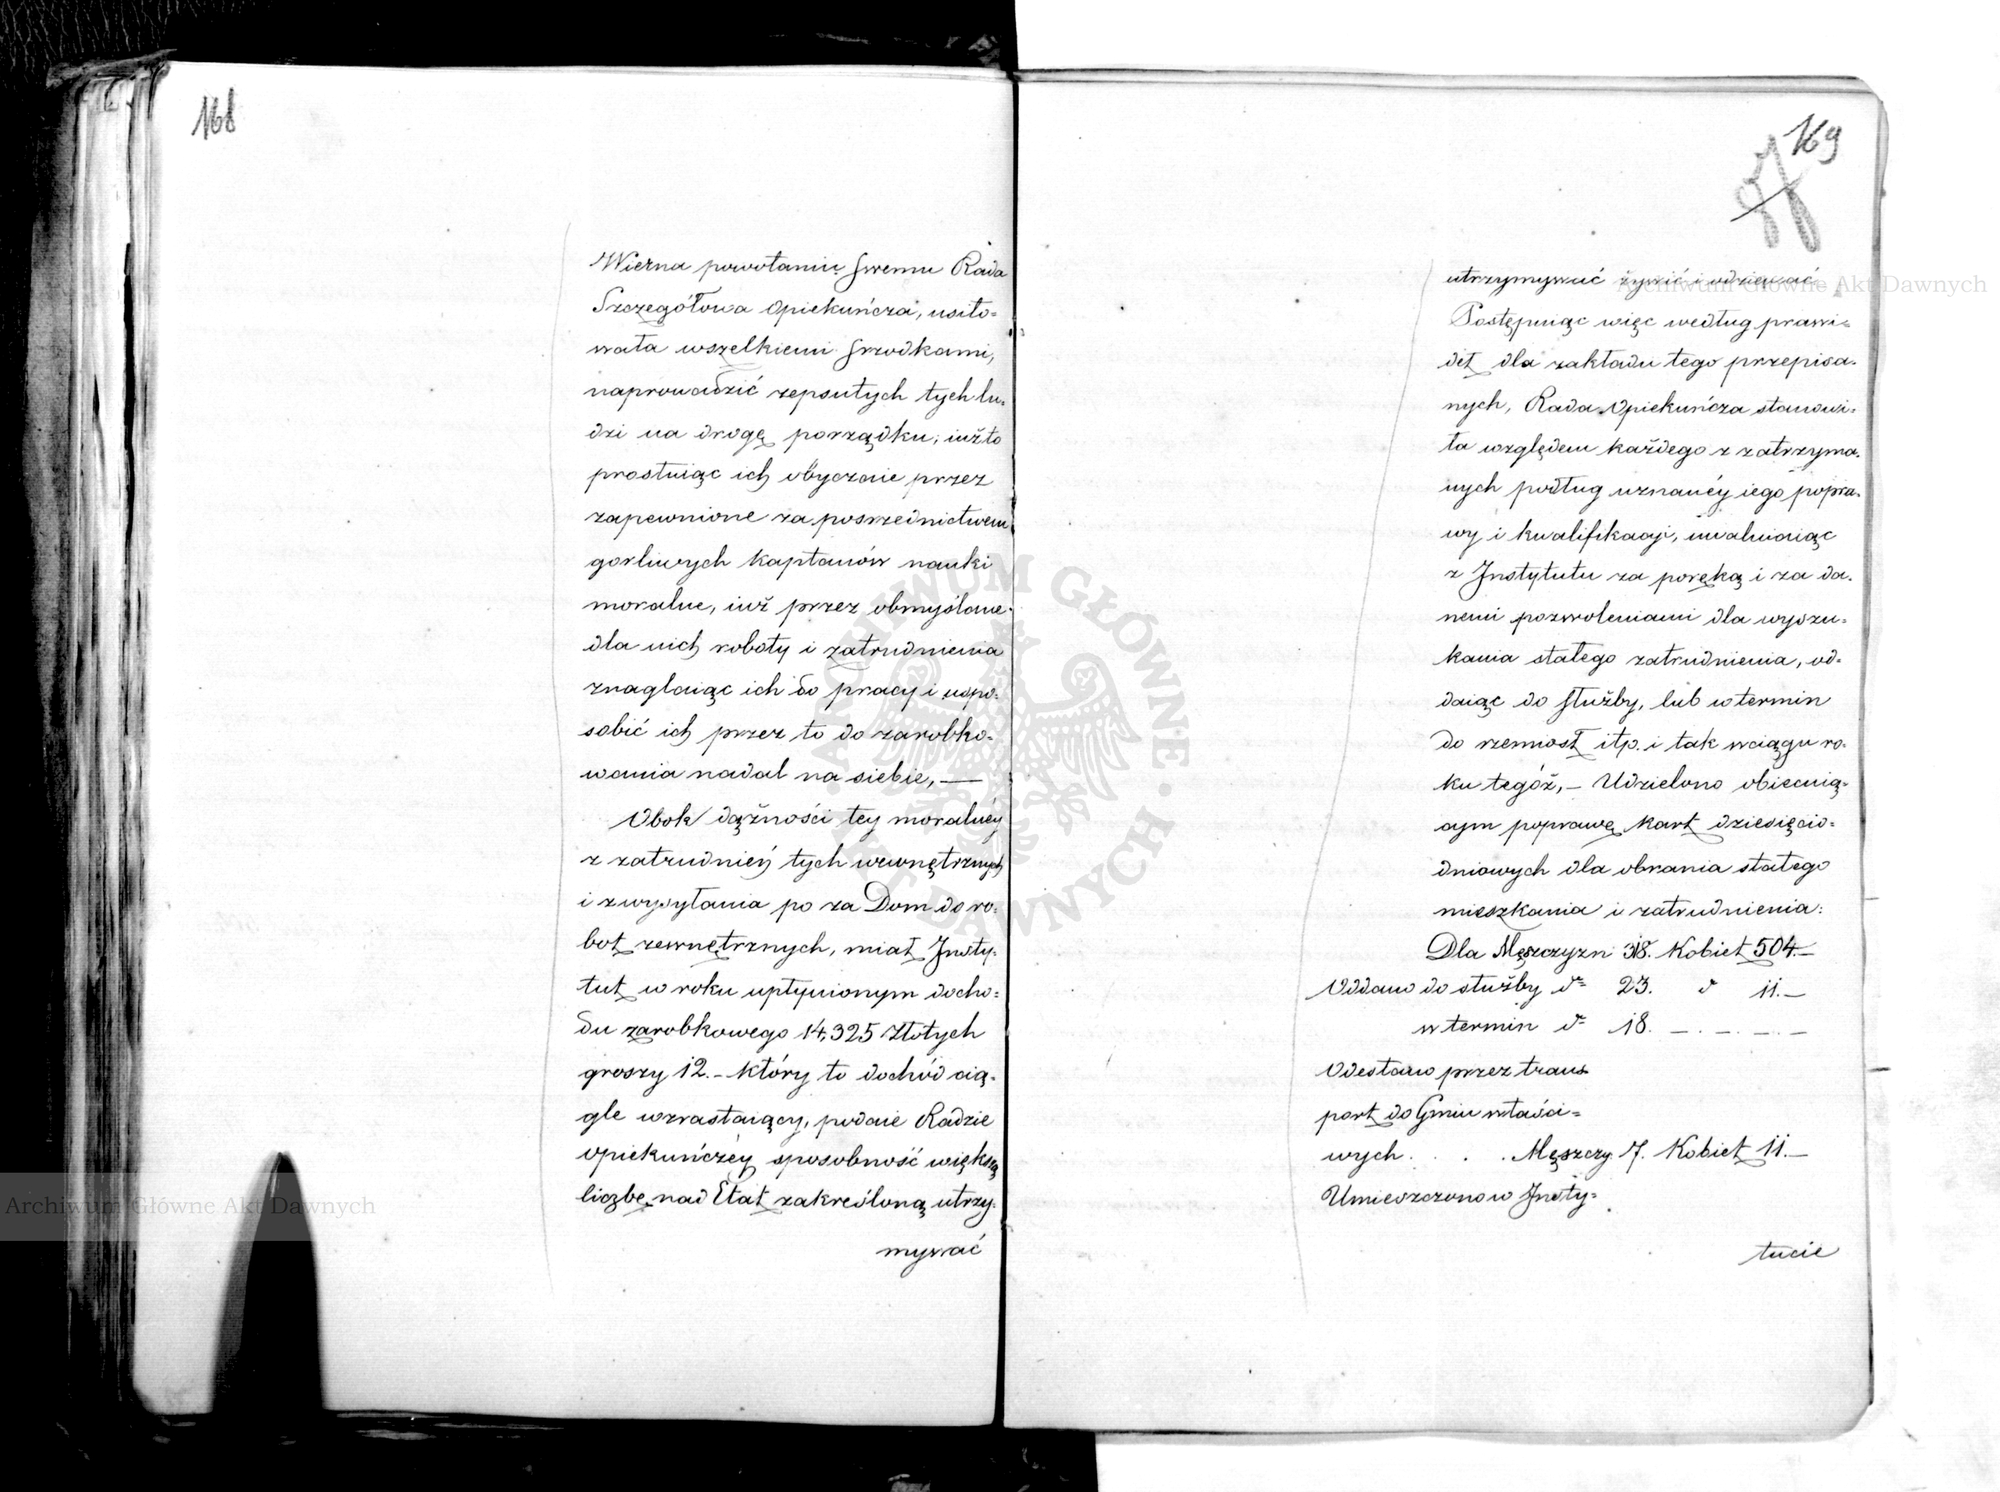 168
Wierna powołaniu swemu Rada
Szczegółowa Opiekuńcza, usiło=
wała wszelkiemi srzodkami,
naprowadzić zepsutych tych lu=
dzi na drogę porządku; iużto
prostuiąc ich obyczaie przez
zapewnione za posrzednictwem
gorliwych Kapłanów nauki
moralne, iuż przez obmyślane
dla nich roboty i zatrudnienia
znaglaiąc ich do pracy i uspo=
sobić ich przez to do zarobko=
wania nadal na siebie, —
Obok dążności tey moralnéy
z zatrudnień tych wewnętrznych
i z wysyłania po za Dom do ro=
bot zewnętrznych, miał Insty=
tut w roku upłynionym docho=
du zarobkowego 14,325 Złotych
groszy 12. – który to dochód cią=
gle wzrastaiący, podaie Radzie
Opiekuńczéy sposobność większą
liczbę nad Etat zakreśloną utrzy=
mywać
169
utrzymywać żywić i odziewać
Postępuiąc więc według prawi=
deł dla zakładu tego przepisa=
nych, Rada Opiekuńcza stanowi=
ła względem każdego z zatrzyma=
nych podług uznanéy iego popra=
wy i kwalifikacyi, uwalniaiąc
z Instytutu za poręką i za da=
nemi pozwoleniami dla wyszu=
kania stałego zatrudnienia, od=
daiąc do służby, lub w termin
do rzemiosł itp. i tak w ciągu ro=
ku tegóż, – Udzielono obiecuią=
cym poprawę Kart dziesięcio=
dniowych dla obrania stałego
mieszkania i zatrudnienia:
Dla Męszczyzn 318. Kobiet 504.—
Oddano do służby do 23. do 11.—
w termin do 18. — . — . — . —
Odesłano przez trans
port do Gmin właści=
wych . . . . Męszczy. 7. Kobiet 11.—
Umieszczono w Insty=
tucie
Archiwum Główne Akt Dawnych
Archiwum Główne Akt Dawnych
ARCHIWUM GŁÓWNE · AKT DAWNYCH ·